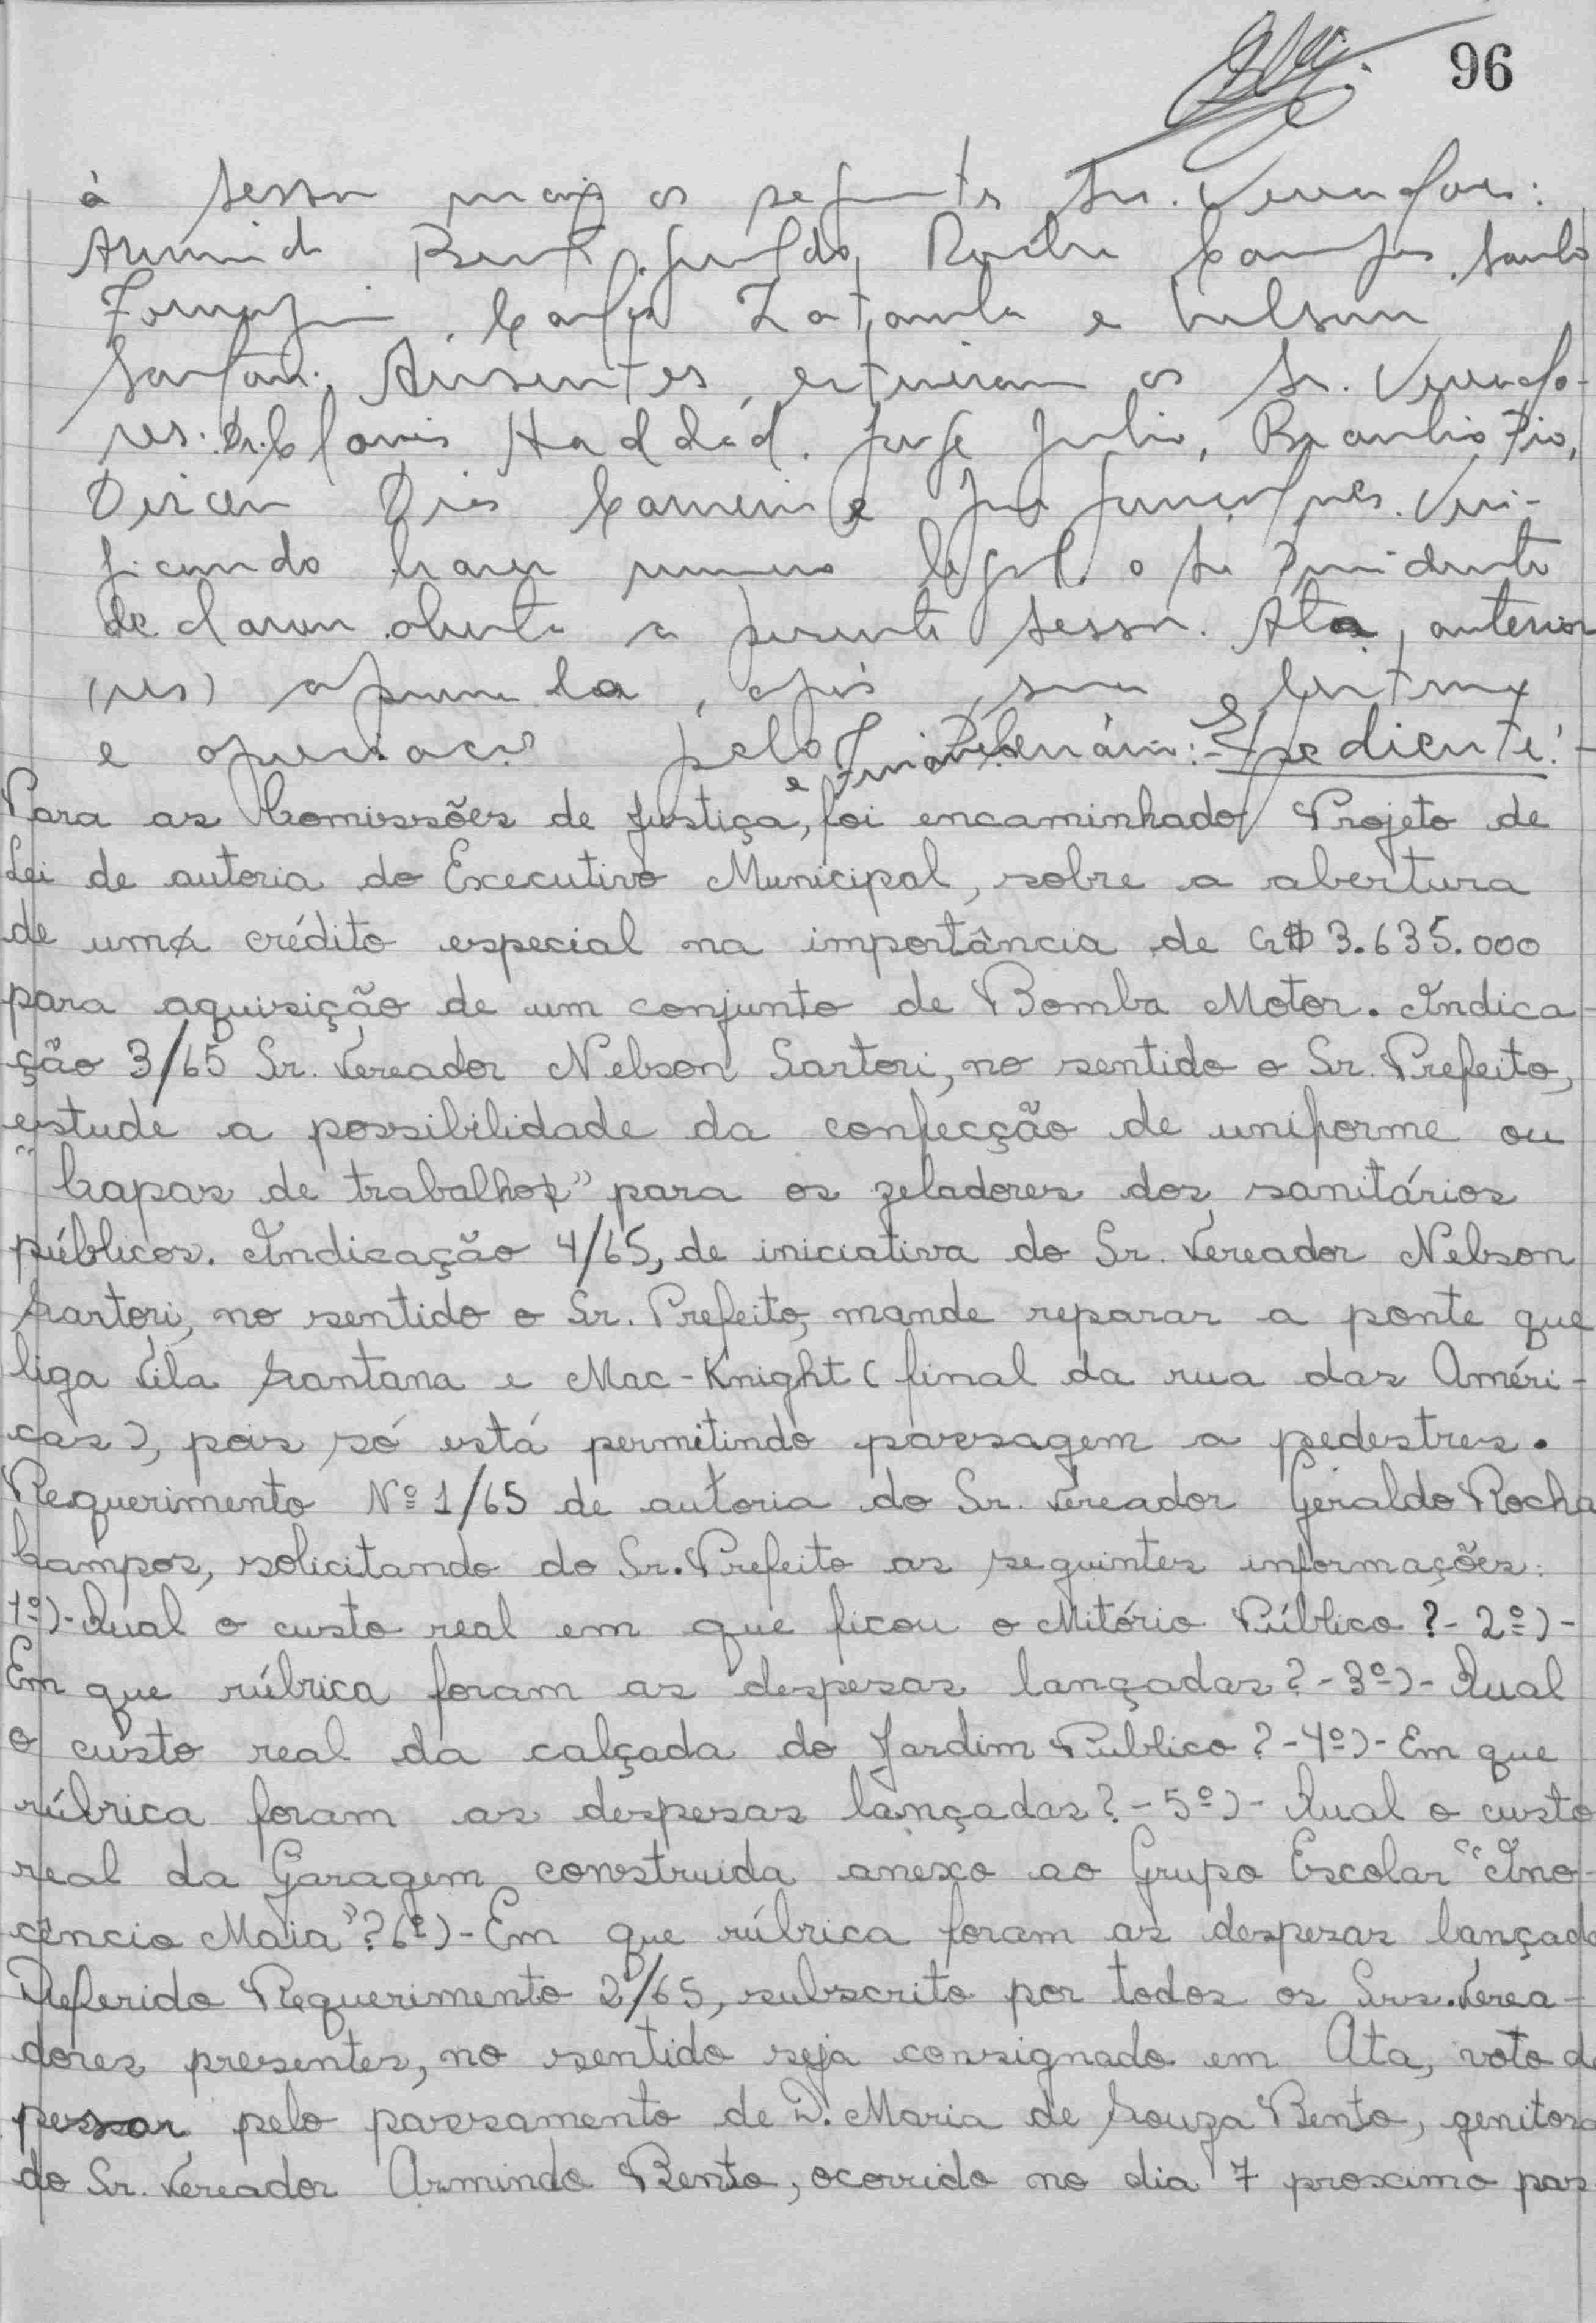 96
à sessão mais os seguintes Srs. Vereadores:
Armindo Bento, Geraldo Rocha Campos, Santo
Carlos e Nelson
Sartori. Ausentes, estiveram os Sr. Vereado-
res. Dr. Clovis Haddad. Jorge Julio, Braulio Pio,
Dirceu Dias Carneiro e José Gonçalves. Veri-
ficando haver numero legal o Sr Presidente
declarou aberta a presente sessão. Ata, anterior
(res) aprovada, após sua leitura
e apreciação pelo Plenário: - Expediente: -
e Finanças
Para as Comissões de Justiça, foi encaminhado Projeto de
Lei de autoria do Executivo Municipal, sobre a abertura
de uma crédito especial na importância de Cr$ 3.635.000
para aquisição de um conjunto de Bomba Motor. Indica-
ção 3/65 Sr. Vereador Nelson Sartori, no sentido o Sr. Prefeito,
estude a possibilidade da confecção de uniforme ou
"Capas de trabalhos" para os zeladores dos sanitários
públicos. Indicação 4/65, de iniciativa do Sr. Vereador Nelson
Sartori, no sentido o Sr. Prefeito, mande reparar a ponte que
liga Vila Santana e Mac-Knight (final da rua das Améri-
cas), pois só está permitindo passagem a pedestres.
Requerimento Nº 1/65 de autoria do Sr. Vereador Geraldo Rocha
Campos, solicitando do Sr. Prefeito as seguintes informações:
1º)- Qual o custo real em que ficou o Mitório Público? - 2º)-
Em que rúbrica foram as despesas lançadas? - 3º)- Qual
o custo real da calçada do Jardim Publico? - 4º)- Em que
rúbrica foram as despesas lançadas? - 5º)- Qual o custo
real da Garagem construida anexo ao Grupo Escolar "Ino-
cêncio Maia"? 6º)- Em que rúbrica foram as despesas lançada
Referido Requerimento 2/65, subscrito por todos os Srs. Verea-
dores presentes, no sentido seja consignado em Ata, voto de
pesar pelo passamento de D. Maria de Souza Bento, genitora
do Sr. Vereador Armindo Bento, ocorrido no dia 7 proximo pas